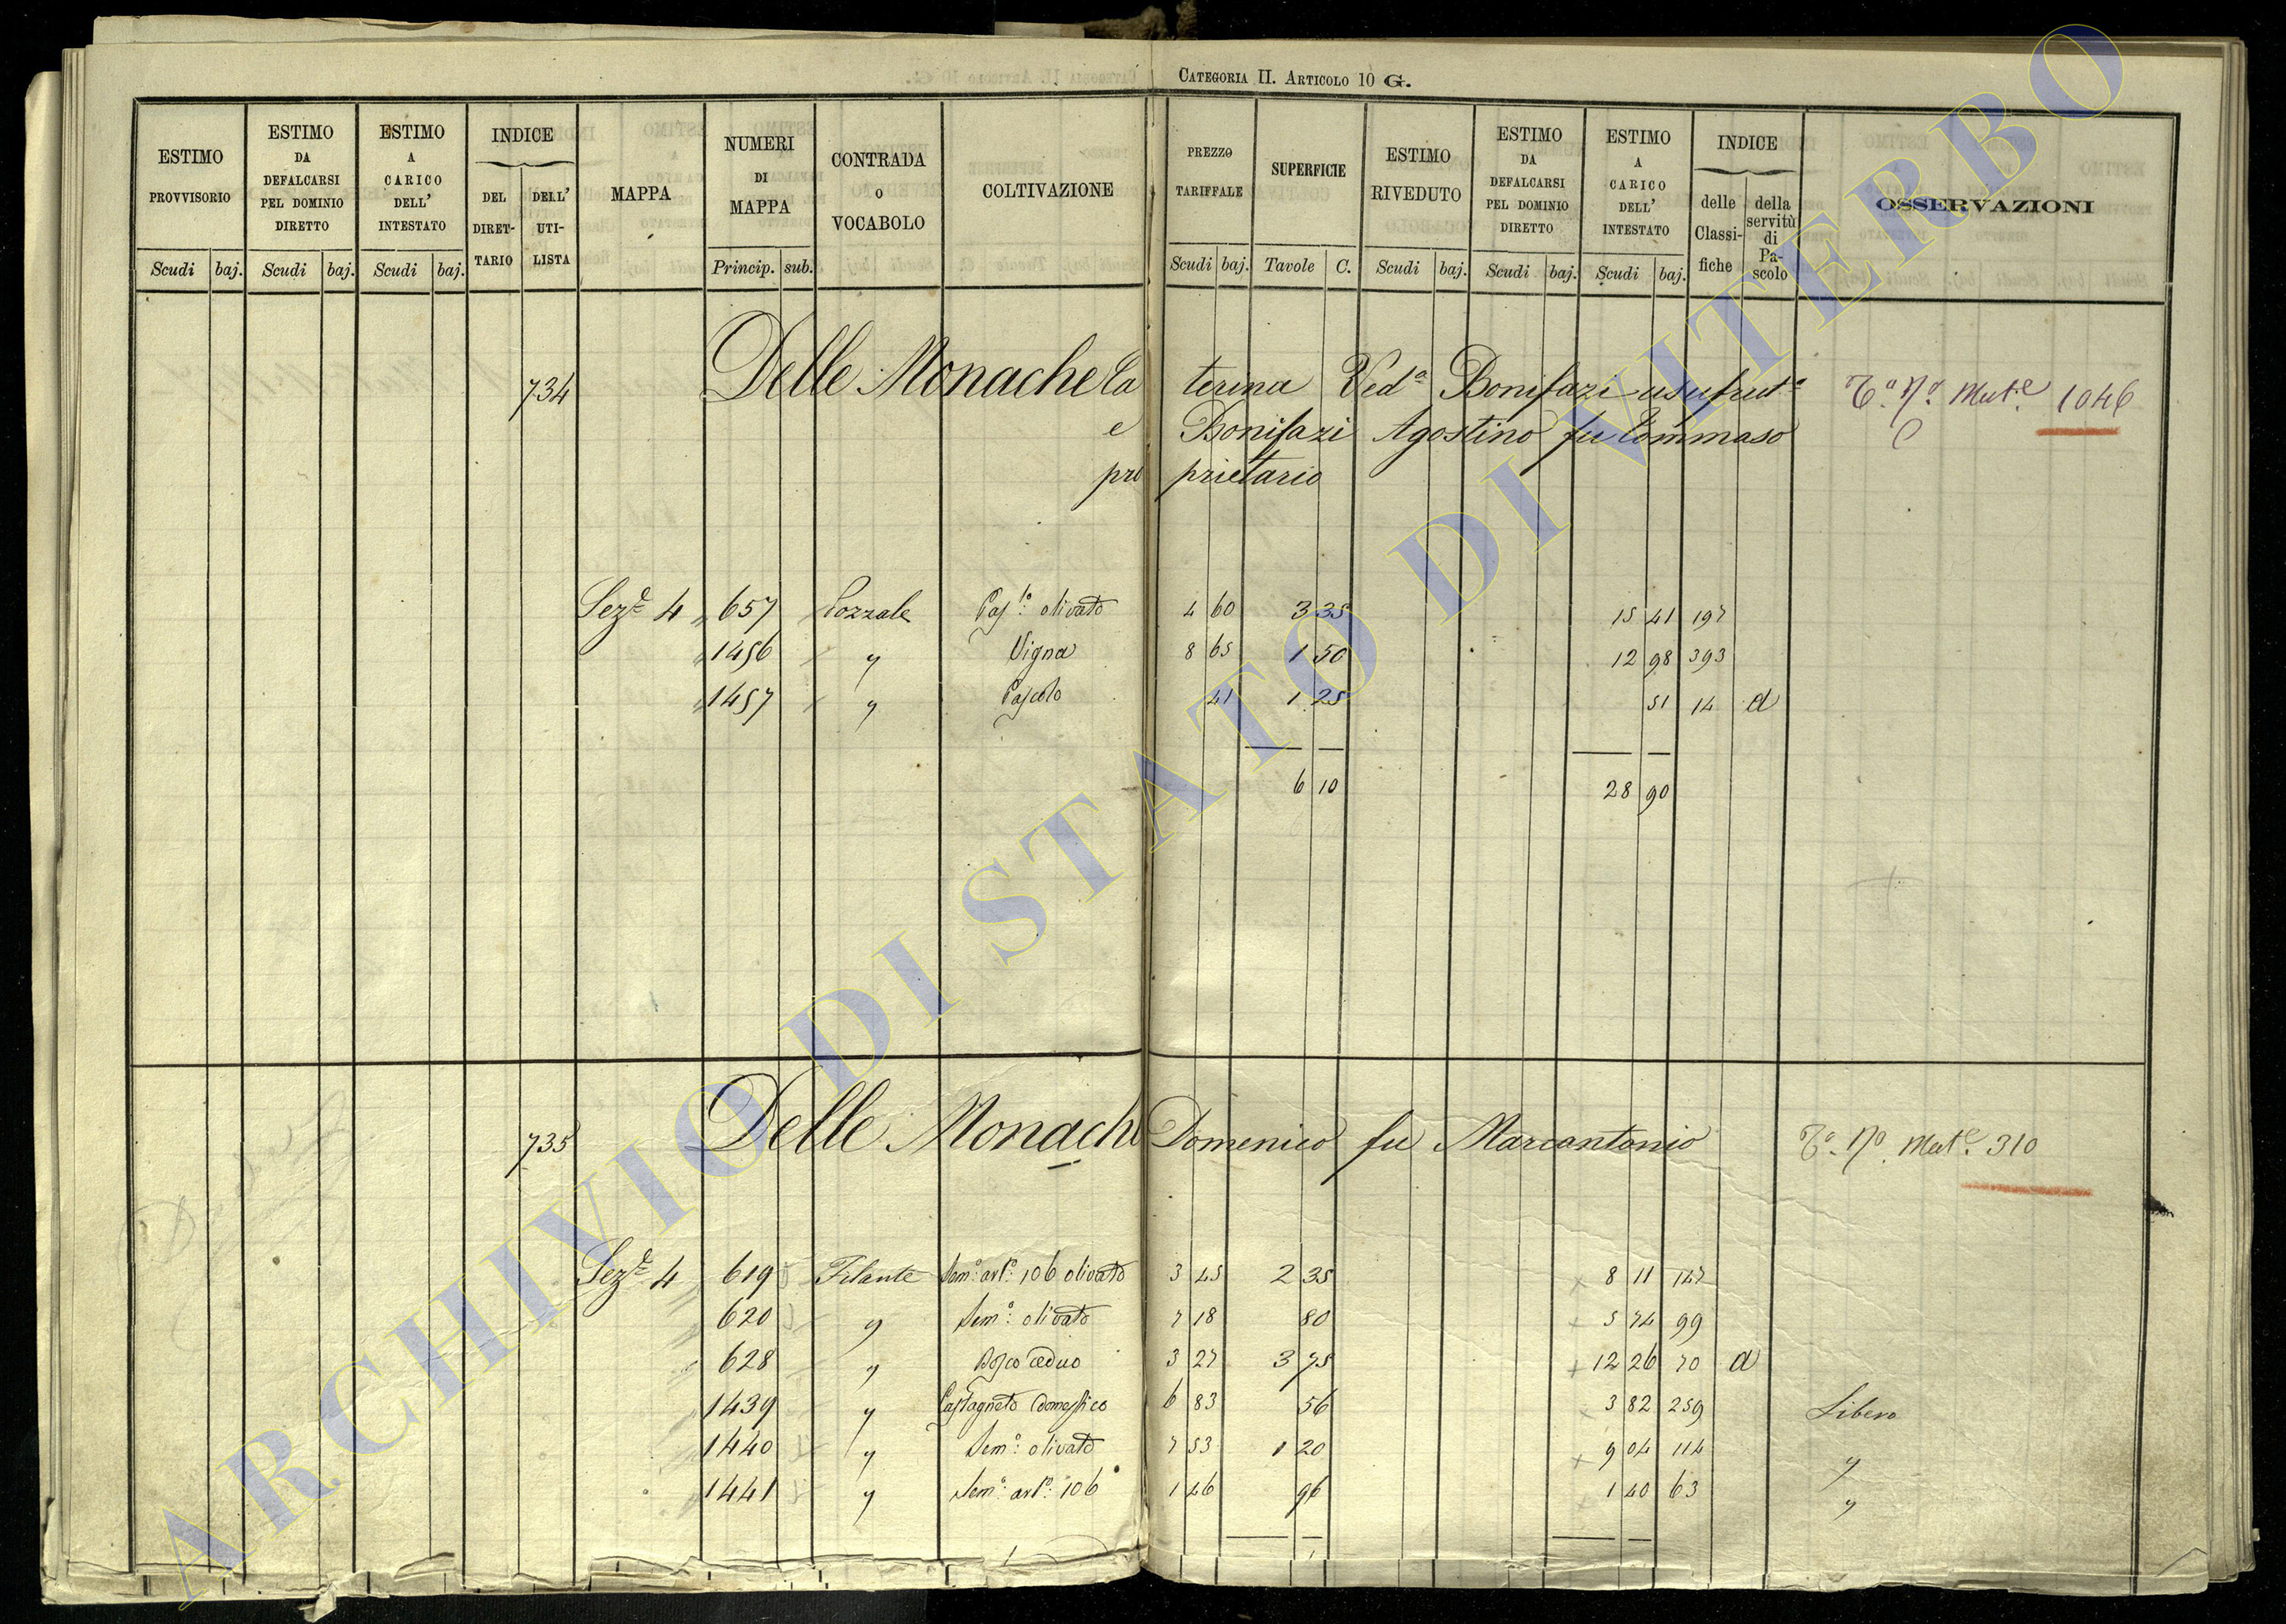 CATEGORIA II. ARTICOLO 10 G.
ESTIMO PROVVISORIO
ESTIMO DA DEFALCARSI PEL DOMINIO DIRETTO
ESTIMO A CARICO DELL' INTESTATO
INDICE
DEL DIRET-TARIO
DELL' UTI-LISTA
MAPPA
NUMERI DI MAPPA
CONTRADA O VOCABOLO
COLTIVAZIONE
PREZZO TARIFFALE
SUPERFICIE
ESTIMO RIVEDUTO
ESTIMO DA DEFALCARSI PEL DOMINIO DIRETTO
ESTIMO A CARICO DELL' INTESTATO
INDICE
delle Classi-fiche
della servitù di Pa-scolo
OSSERVAZIONI
Scudi baj. Scudi baj. Scudi baj. Princip. sub. Scudi baj. Tavole C. Scudi baj. Scudi baj. Scudi baj.
734 Delle Monache Ca terina Ved.a Bonifazi usufrut.a Mut.e 1046
e Bonifazi Agostino fu Tommaso
pro prietario
Sez.e 4 657 Pozzale Pas.lo olivato 4 60 3 35 15 41 197
1456 " Vigna 8 65 1 50 12 98 393
1457 " Pascolo 41 1 25 51 14 d
6 10 28 90
735 Delle Monache Domenico fu Marcantonio Mut.e 310
Sez.e 4 619 Filante Sem.o art.o 106 olivato 3 45 2 35 8 11 147
620 " Sem.o olivato 7 18 80 5 74 99
628 " Bosco ceduo 3 27 3 75 12 26 70 d
1439 " Castagneto domestico 6 83 56 3 82 259 Libero
1440 " Sem.o olivato 7 53 1 20 9 04 114 "
1441 " Sem.o art.o 106 1 46 96 1 40 63 "
ARCHIVIO DI STATO DI VITERBO